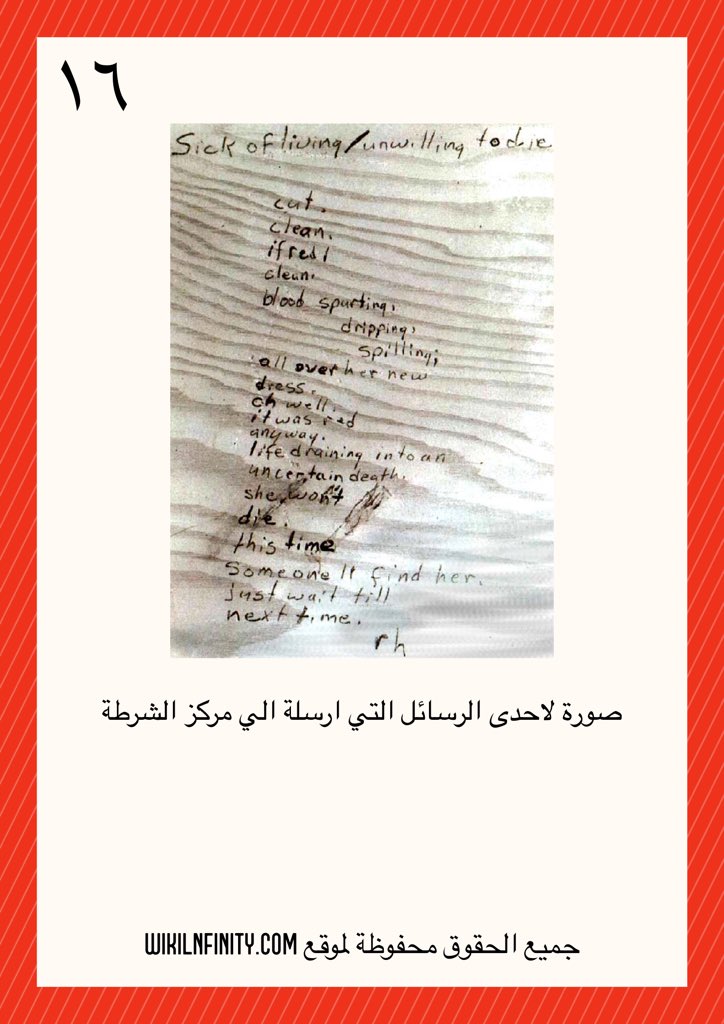 ١٦
Sick of living / unwilling to die
cut.
clean.
if red /
clean.
blood spurting,
dripping,
spilling;
all over her new
dress.
oh well.
it was red
anyway.
life draining into an
uncertain death.
she won't
die.
this time
Someone ll find her.
just wait till
next time.
rh
صورة لاحدى الرسائل التي ارسلة الي مركز الشرطة
جميع الحقوق محفوظة لموقع WIKILNFINITY.COM